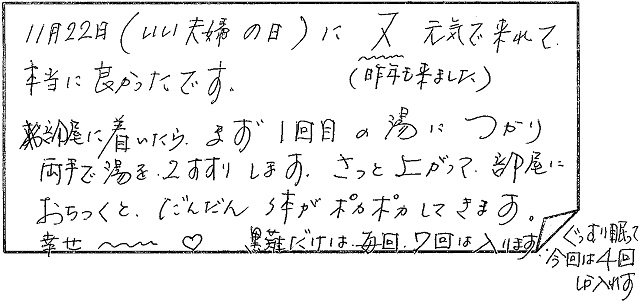 11月22日(いい夫婦の日)に 又 元気で来れて
本当に良かったです。 (昨年も来ました)
部屋に着いたら、まず1回目の湯につかり
両手で湯を、2すすりします。さっと上がって、部屋に
おちつくと、だんだん体がポカポカしてきます。
幸せ〜〜〜♡ 黒薙だけは、毎回、7回は入ります。
ぐっすり眠って
今回は4回
しか入れず